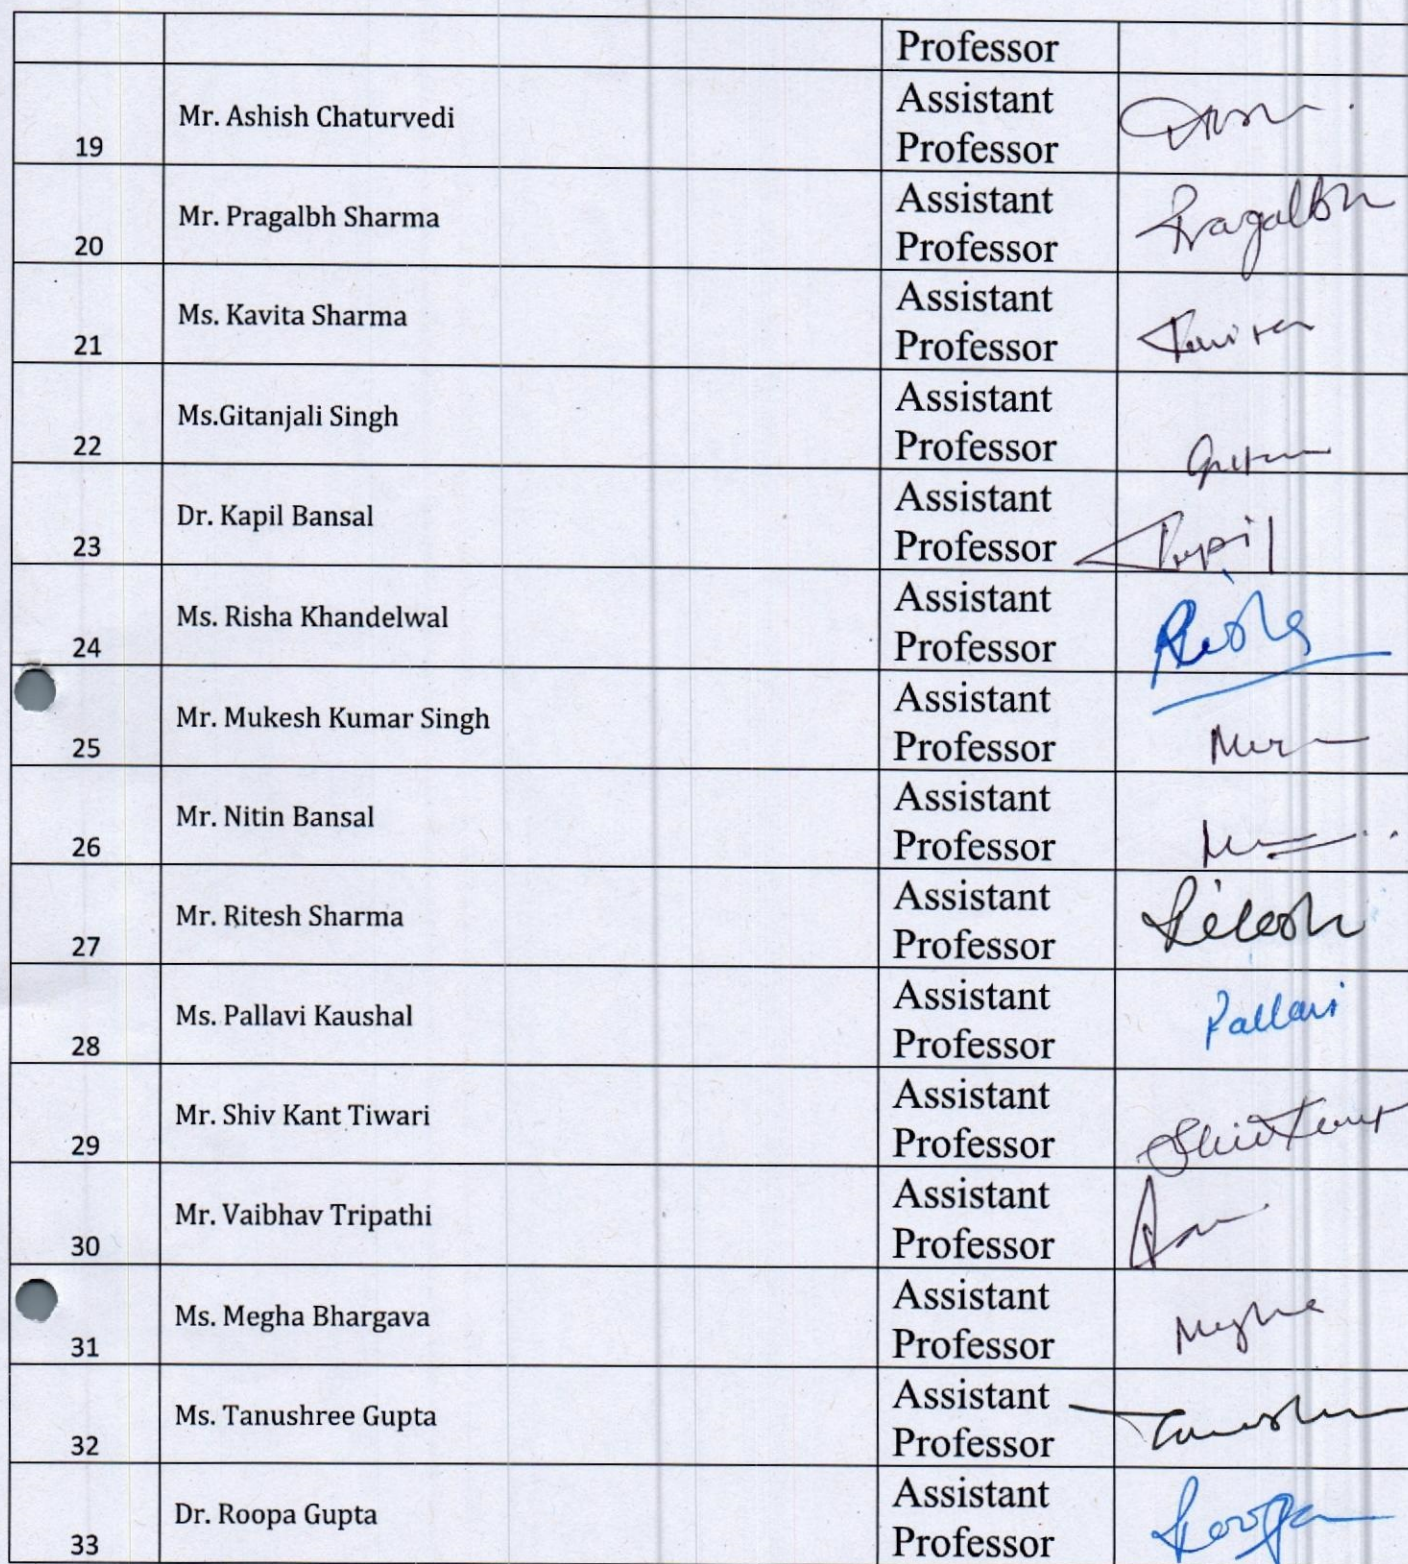 Professor
19 Mr. Ashish Chaturvedi Assistant
Professor
20 Mr. Pragalbh Sharma Assistant
Professor Pragalbh
21 Ms. Kavita Sharma Assistant
Professor Kavita
22 Ms.Gitanjali Singh Assistant
Professor
23 Dr. Kapil Bansal Assistant
Professor Kapil
24 Ms. Risha Khandelwal Assistant
Professor Risha
25 Mr. Mukesh Kumar Singh Assistant
Professor
26 Mr. Nitin Bansal Assistant
Professor
27 Mr. Ritesh Sharma Assistant
Professor Ritesh
28 Ms. Pallavi Kaushal Assistant
Professor Pallavi
29 Mr. Shiv Kant Tiwari Assistant
Professor Shivkant
30 Mr. Vaibhav Tripathi Assistant
Professor
31 Ms. Megha Bhargava Assistant
Professor Megha
32 Ms. Tanushree Gupta Assistant
Professor
33 Dr. Roopa Gupta Assistant
Professor Roopa